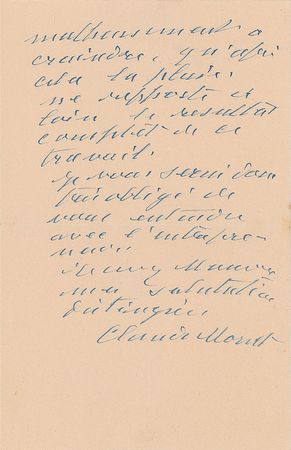 malheureusement à
craindre, qu'après
cela la pluie
ne
le résultat
complet de ce
travail.
je vous serai donc
très obligé de
vous entendre
avec l'entrepre-
neur.
Recevez Monsieur
mes salutations
distinguées
Claude Monet